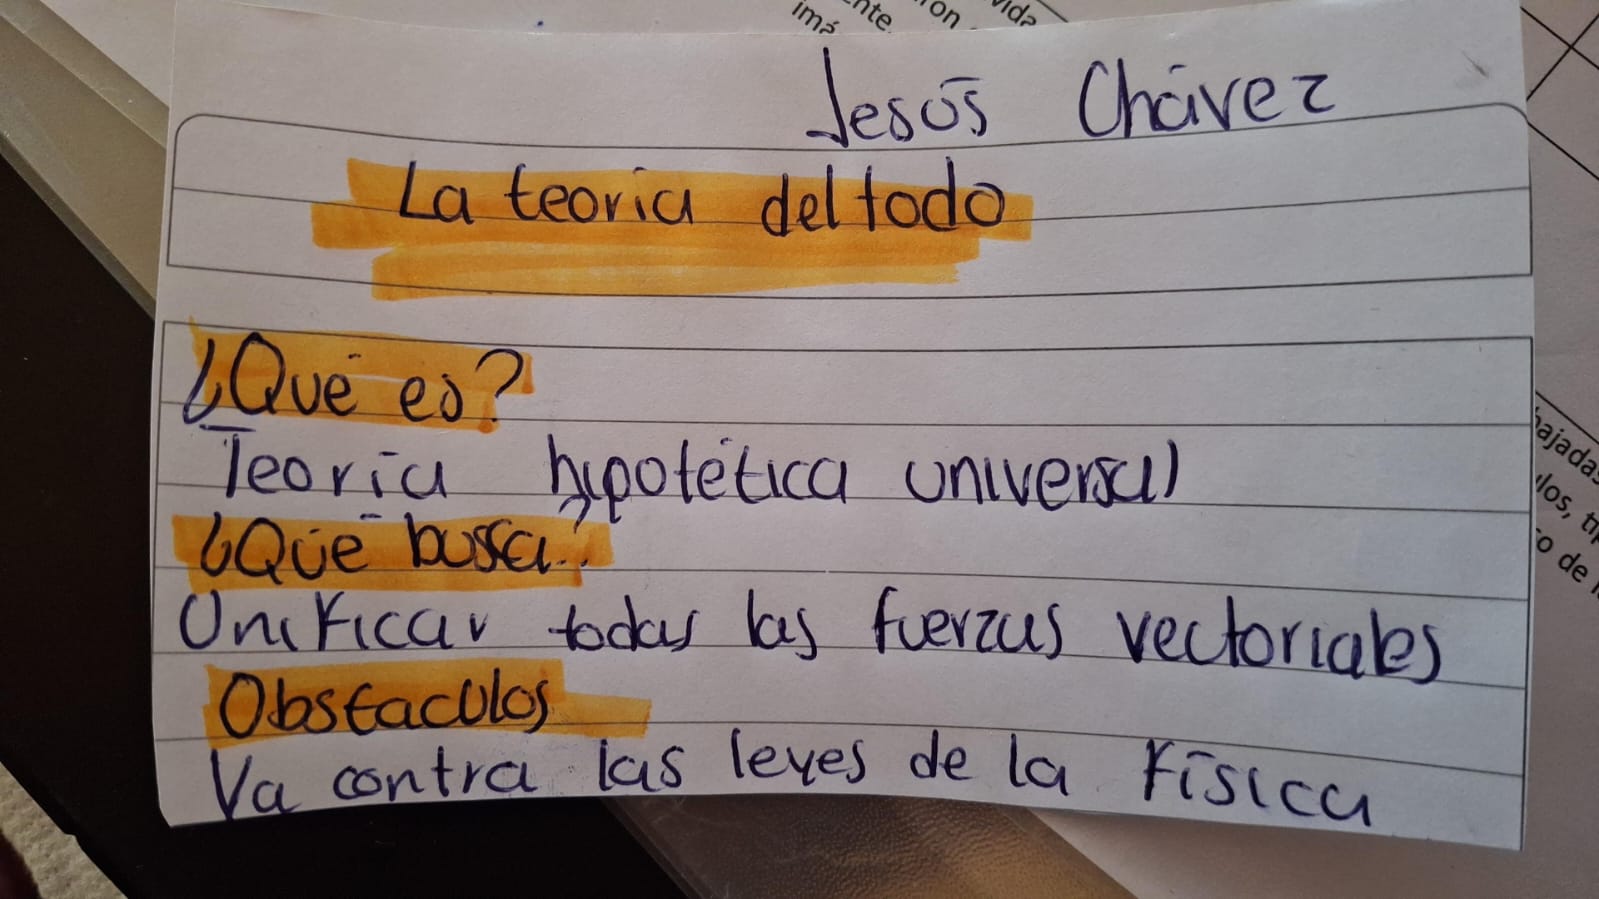 nte.
ron
vida
imá
Jesús Chávez
La teoría del todo
¿Qué es?
Teoría hipotética universal
¿Qué busca?
Unificar todas las fuerzas vectoriales
Obstaculos
Va contra las leyes de la física
ajadas
los, ti
o de